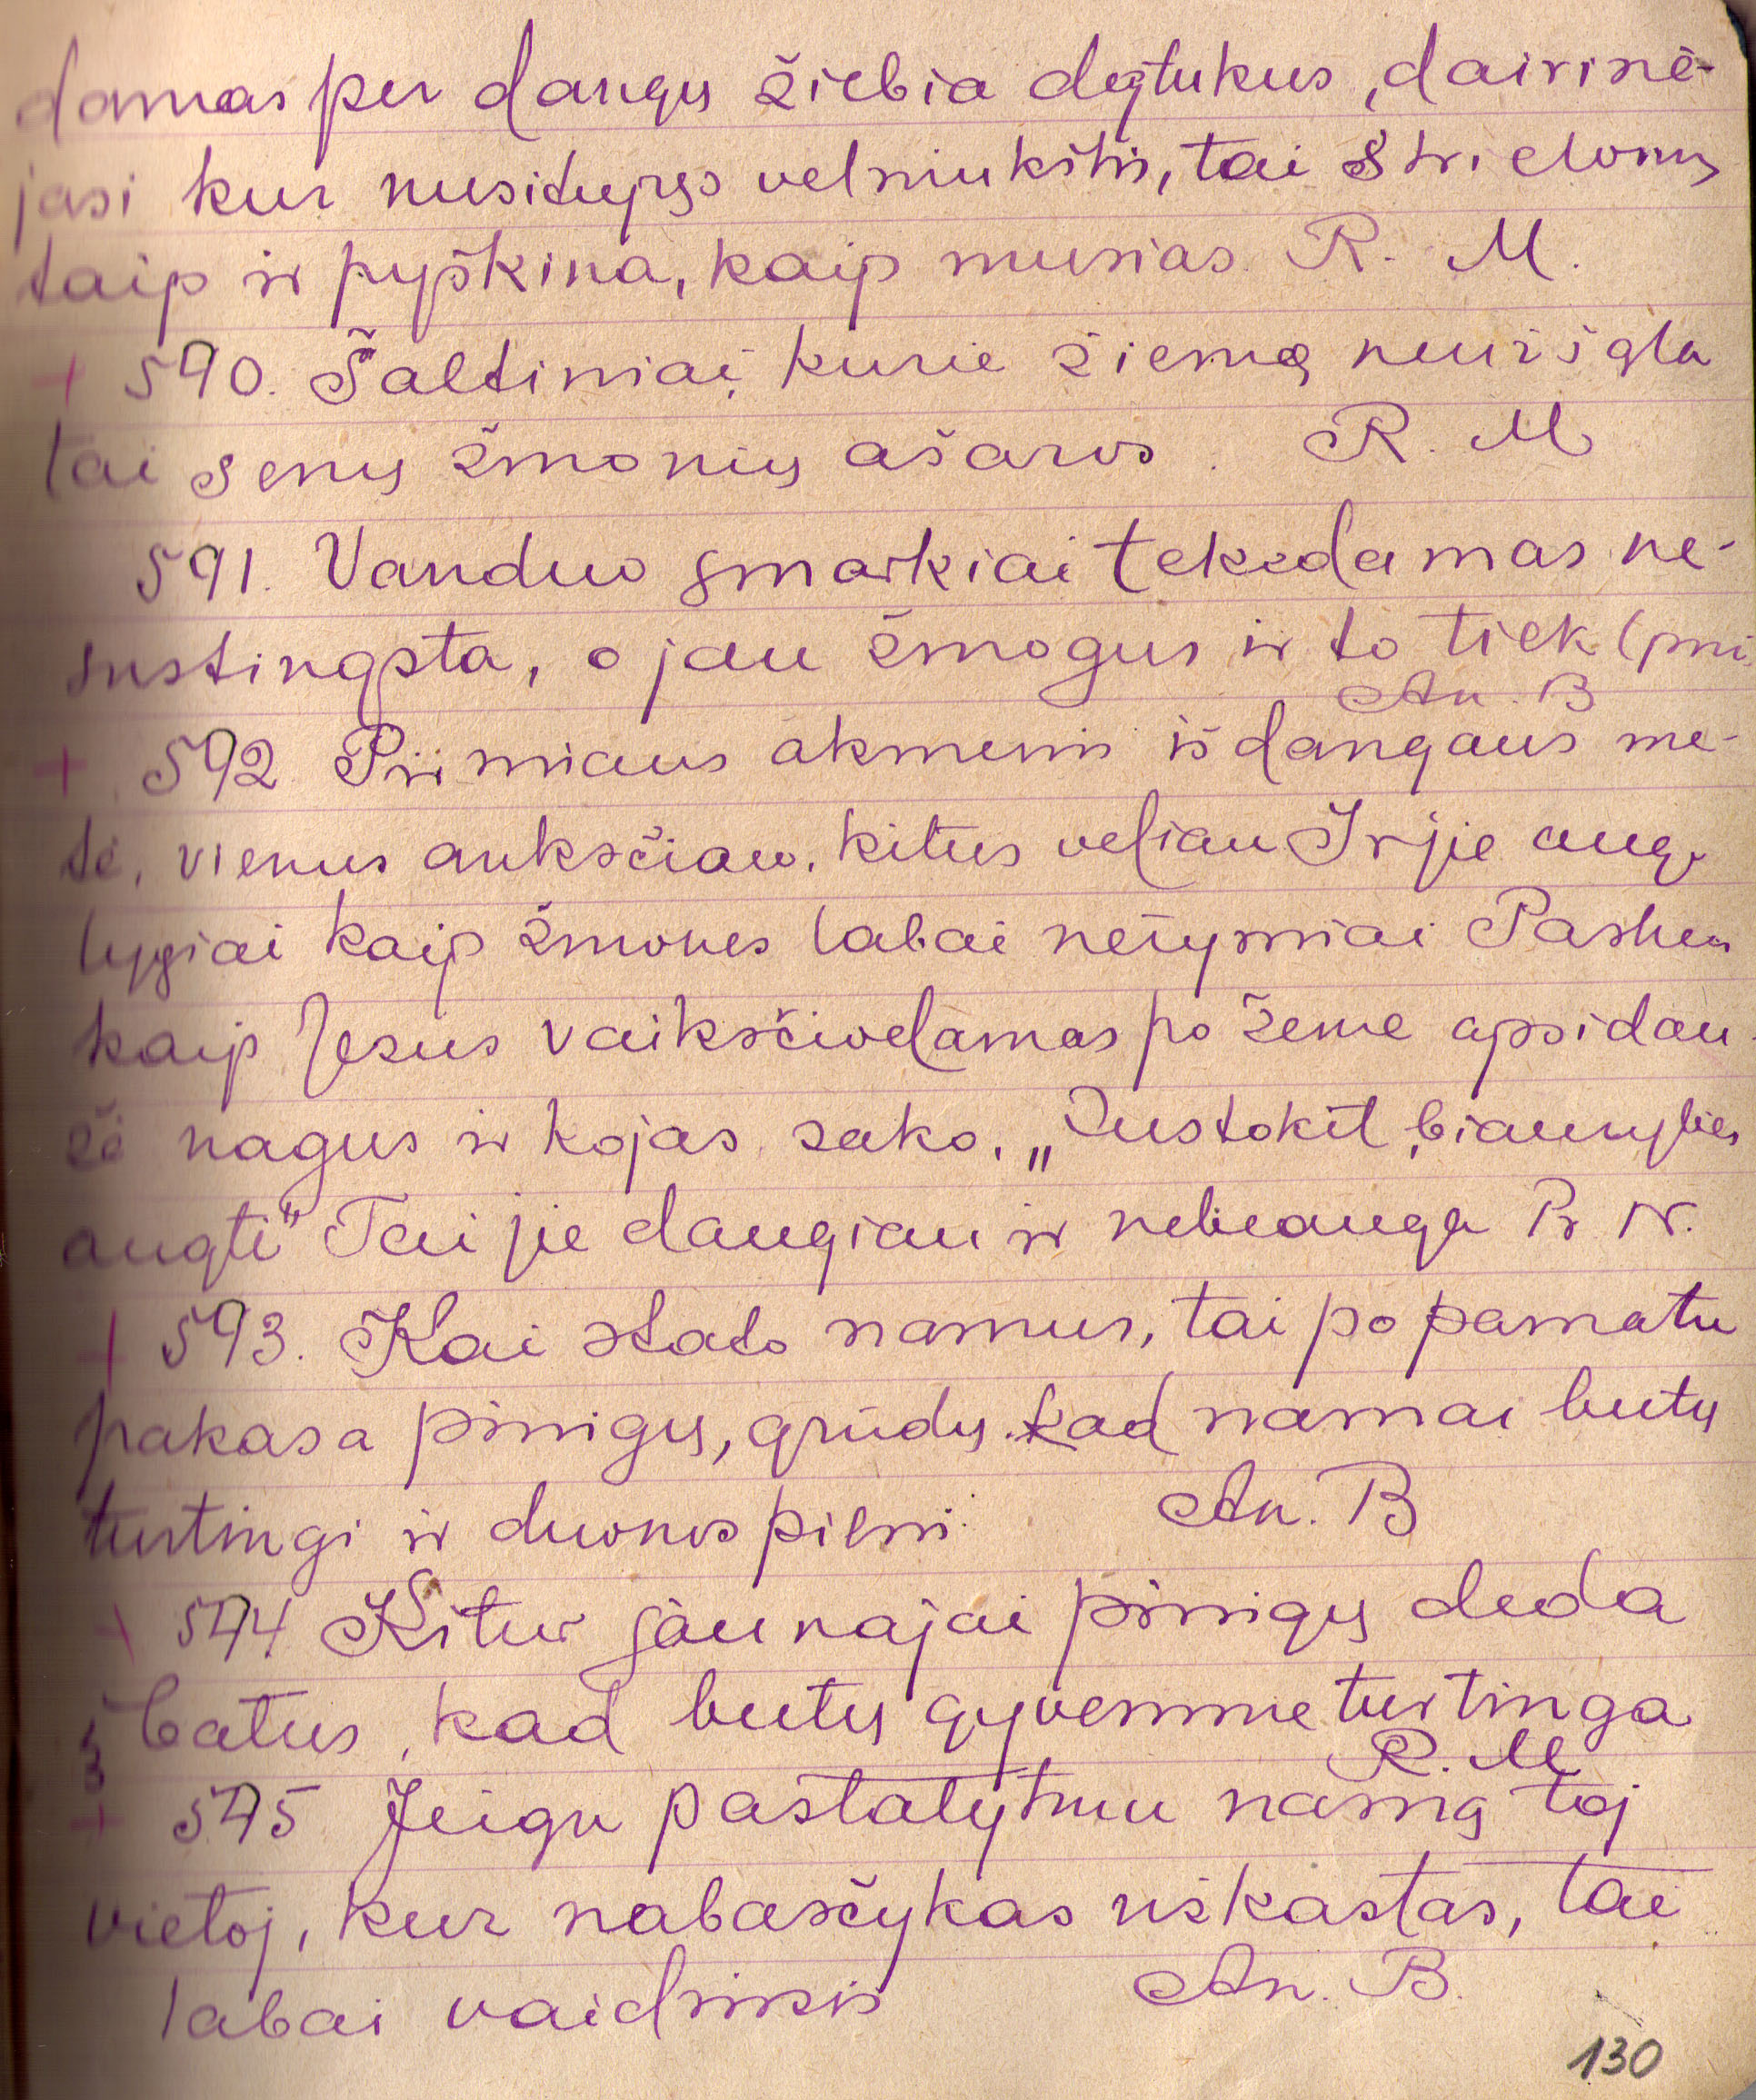 damas per dangų žiebia degtukus, dairinė-
jasi kur nusitupęs velniukštis, tai strieloms
taip ir pyškina, kaip musias. R. M.
+ 590. Šaltiniai, kurie žiemą neužšąla
tai senų žmonių ašaros. R. M
591. Vanduo smarkiai tekėdamas ne-
sustingsta, o jau žmogus ir to tiek (pri
An. B
+ 592 Pirmiaus akmenis iš dangaus me-
tė, vienus anksčiau, kitus veliau Ir jie augo
lygiai kaip žmones labai nežymiai Paskum
kaip Jezus vaiksčiodamas po žeme apsidau-
žė nagus ir kojas, sako, „Sustokit, biaurybes
augti" Tai jie daugiau ir nebeauga Pr N.
+ 593. Kai stato namus, tai po pamatu
pakasa pinigų, grūdų. kad namai butų
turtingi ir duonos pilni. An. B
+ 594 Kitur jaunajai pinigų deda
į batus, kad butų gyvenime turtinga
R. M
+ 595 Jeigu pastatytum namą toj
vietoj, kur nabasčykas užkastas, tai
labai vaidinsis An. B.
130